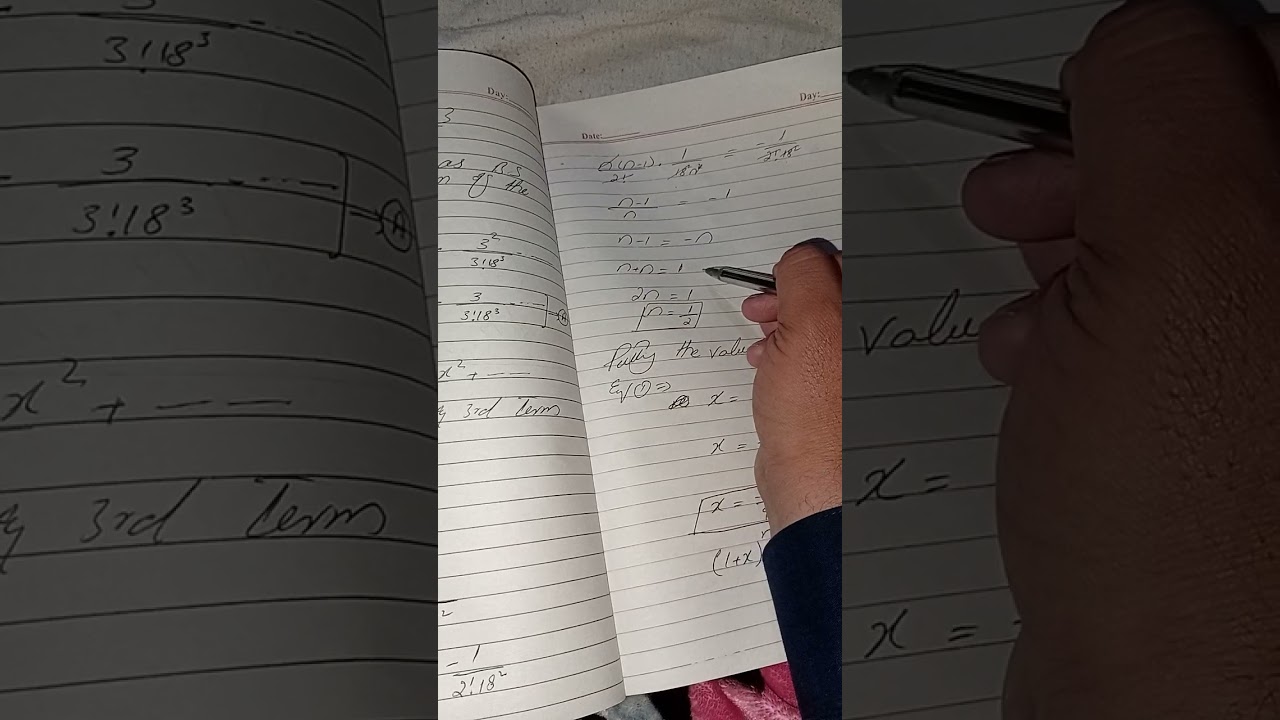 Day:
3
as R.S
of the
3²
3!18³
3
3!18³
x² + - - -
3rd term
- 1
2!18²
Day:
Date:
n(n-1) . 1 = - 1
2! 18²n² 2!18²
n-1 = -1
n
n-1 = -n
n+n = 1
2n = 1
n = 1
2
the value
Eq ① ⇒
x =
x =
x =
(1+x)
3!18³
3
3!18³
A
x² + - - -
3rd term
value
x =
x =